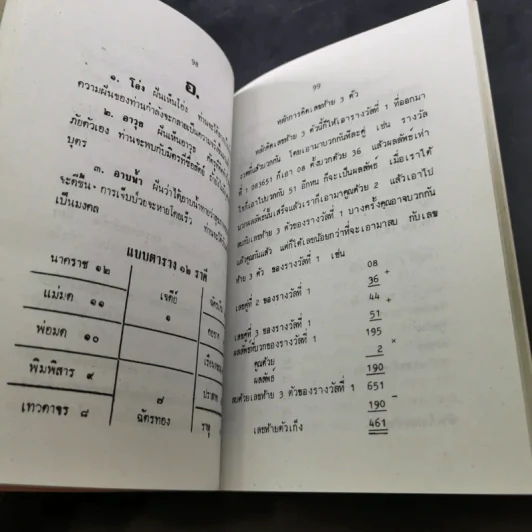 98
อ.
๑. โอ่ง ฝันเห็นโอ่ง
ความฝันของท่านกำลังจะกลายเป็นความจริง
๒. อาวุธ ฝันเห็นอาวุธ
ภัยตัวเอง ท่านจะพบกับมิตรที่ซื่อสัตย์
บุตร
๓. อาบน้ำ ฝันว่าได้อาบน้ำ
จะดีขึ้น การเจ็บป่วยจะหายโดยเร็ว
เป็นมงคล
แบบตาราง ๑๒ ราศี
นาคราช ๑๒
เจดีย์
๑
แม่มด ๑๑
พ่อมด ๑๐
พิมพิสาร ๙
เทวดาจร ๘
๗
ฉัตรทอง
ราหู
99
หลักการคิดเลขท้าย 3 ตัว
หลักคิดเลขท้าย 3 ตัวนี้ก็ให้เอารางวัลที่ 1 ที่ออกมา
งวดที่แล้วบวกกัน โดยเอามาบวกกันทีละคู่ เช่น รางวัล
ที่ 1 083651 ก็เอา 08 ตั้งบวกด้วย 36 แล้วผลลัพธ์เท่า
ไรก็เอาไปบวกกับ 51 อีกหน ก็จะเป็นผลลัพธ์ เมื่อเราได้
บวกผลลัพธ์นั้นเสร็จแล้วเราก็เอามาคูณด้วย 2 แล้วเอาไป
ลบกับเลขท้าย 3 ตัวของรางวัลที่ 1 บางครั้งคูณอาจบวกกัน
แล้วคูณกันแล้ว แต่ก็ได้เลขน้อยกว่าที่จะเอามาลบ กับเลข
ท้าย 3 ตัว ของรางวัลที่ 1 เช่น
08
เลขคู่ที่ 2 ของรางวัลที่ 1 36 +
44
เลขคู่ที่ 3 ของรางวัลที่ 1 51 +
ผลลัพธ์ที่บวกของรางวัลที่ 1 195
คูณด้วย 2 ×
ผลลัพธ์ 190
ลบด้วยเลขท้าย 3 ตัวของรางวัลที่ 1 651
190 -
เลขท้ายตัวเก็ง 461